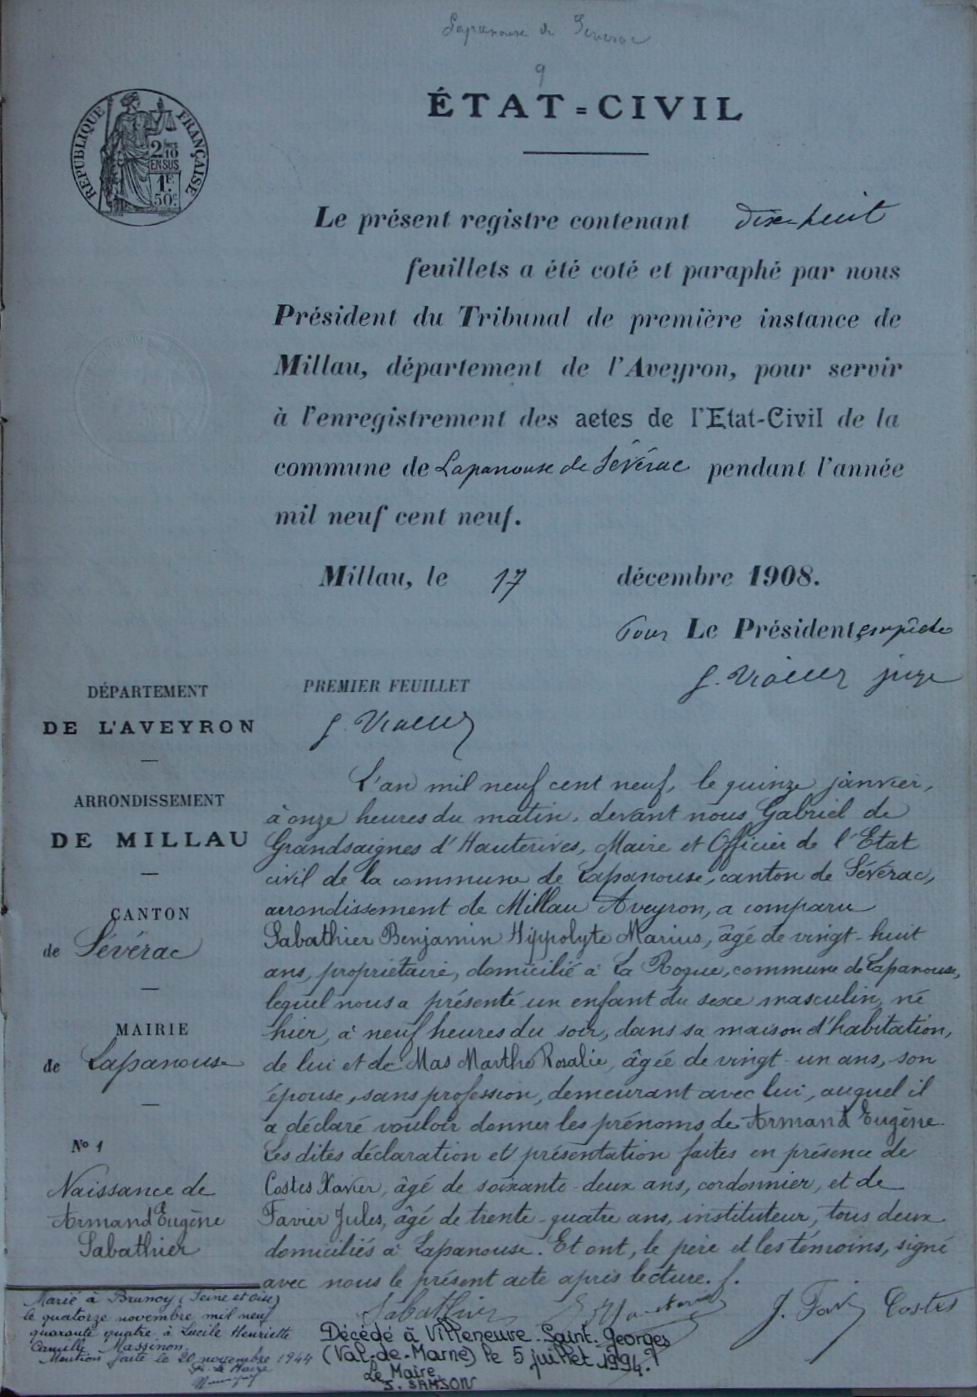 Lapanouse de Séverac
9
ÉTAT=CIVIL
RÉPUBLIQUE FRANÇAISE
2 10
EN SUS
1F
50c
Le présent registre contenant dix-huit
feuillets a été coté et paraphé par nous
Président du Tribunal de première instance de
Millau, département de l'Aveyron, pour servir
à l'enregistrement des actes de l'Etat-Civil de la
commune de Lapanouse de Sévérac pendant l'année
mil neuf cent neuf.
Millau, le 17 décembre 1908.
Pour Le Président empêché
juge
DÉPARTEMENT
DE L'AVEYRON
ARRONDISSEMENT
DE MILLAU
CANTON
de Sévérac
MAIRIE
de Lapanouse
No 1
Naissance de
Armand Eugène
Sabathier
PREMIER FEUILLET
L'an mil neuf cent neuf, le quinze janvier,
à onze heures du matin, devant nous Gabriel de
Grandsaignes d'Hauterives, Maire et Officier de l'Etat
civil de la commune de Lapanouse, canton de Sévérac,
arrondissement de Millau Aveyron, a comparu
Sabathier Benjamin Hippolyte Marius, âgé de vingt-huit
ans, propriétaire, domicilié à La Roque, commune de Lapanouse,
lequel nous a présenté un enfant du sexe masculin, né
hier, à neuf heures du soir, dans sa maison d'habitation,
de lui et de Mas Marthe Rosalie, âgée de vingt-un ans, son
épouse, sans profession, demeurant avec lui, auquel il
a déclaré vouloir donner les prénoms de Armand Eugène.
Les dites déclaration et présentation faites en présence de
Costes Xavier, âgé de soixante-deux ans, cordonnier, et de
Favier Jules, âgé de trente-quatre ans, instituteur, tous deux
domiciliés à Lapanouse. Et ont, le père et les témoins, signé
avec nous le présent acte après lecture.
Sabathier J. Favier Costes
Marié à Brunoy (Seine et Oise)
le quatorze novembre mil neuf
quarante quatre à Lucile Henriette
Camille Massinon.
Mention faite le 20 novembre 1944
Le Maire
Décédé à Villeneuve-Saint-Georges
(Val-de-Marne) le 5 juillet 1994.
Le Maire,
J. SAMSON